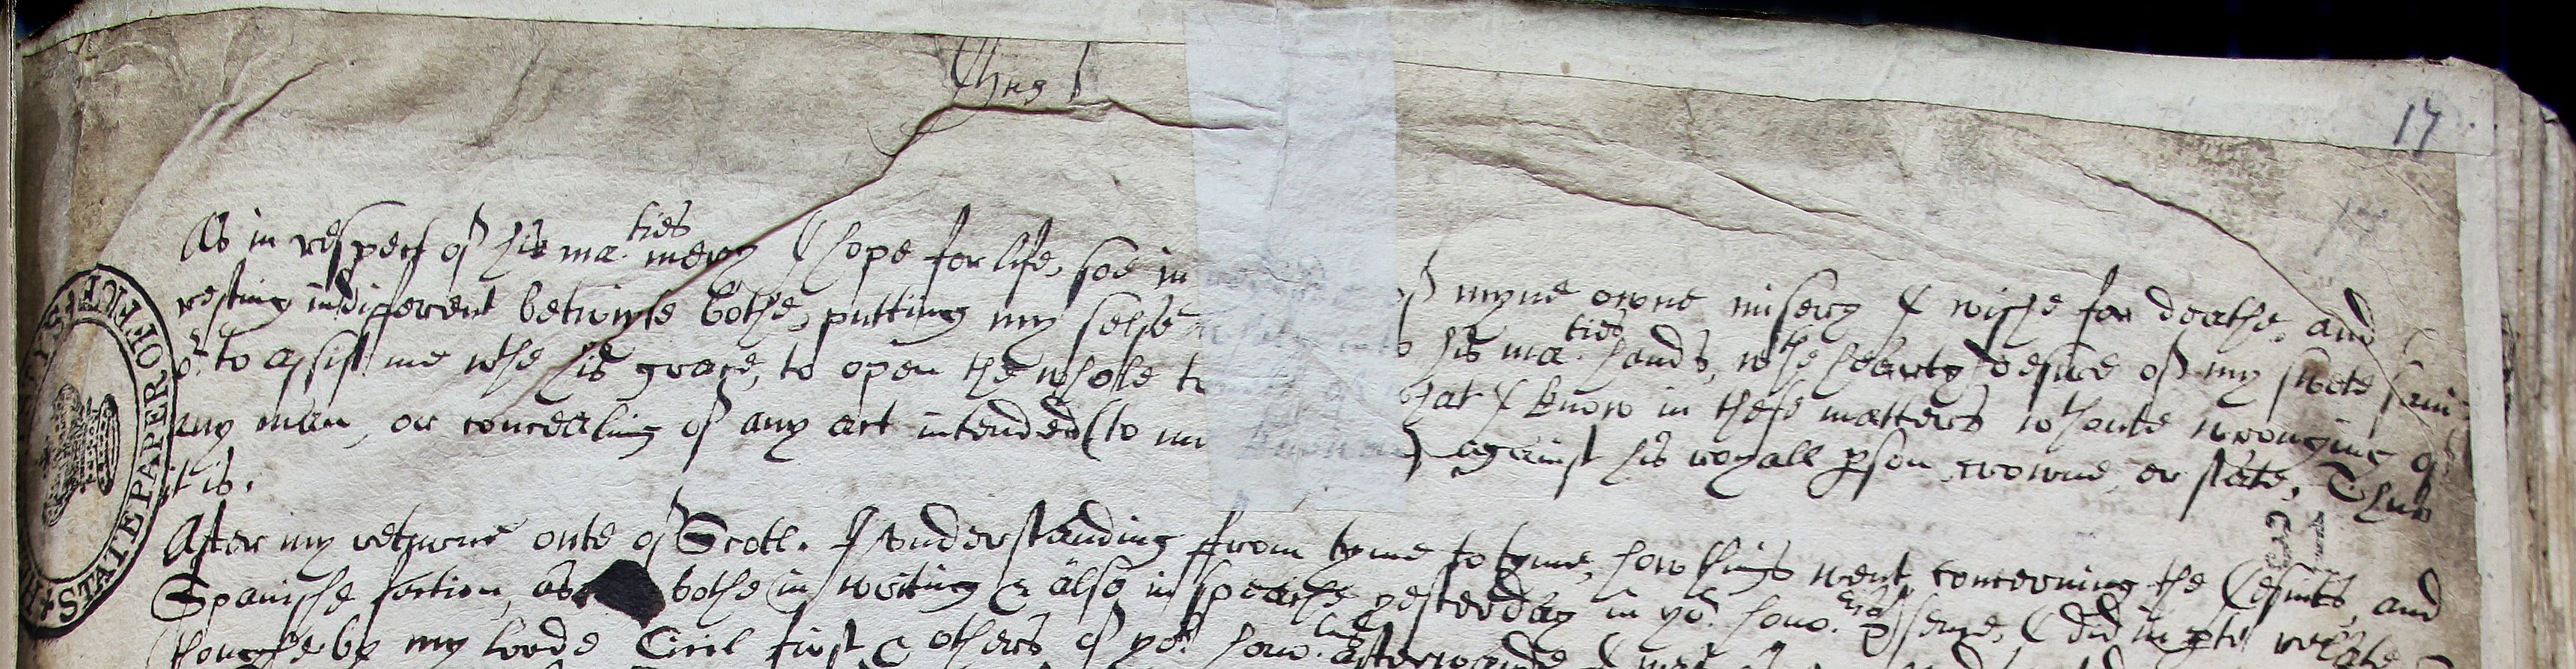 17
As in respect of his ma.ties mercy I hope for life, soe in of myne owne misery I wishe for deathe, and
resting indifferent betwixte bothe, putting my selfe his ma.ties hands, wthe hearty desire of my swete
to assist me wthe his grace, to open the whole tr that I know in these matters wthoute wronging of
any man, or concealing of any act intended (to my ) against his royall pson, crowne, or state, Thus
it is.
31
After my returne oute of Scotl. I understanding ffrom tyme to tyme, how things went concerning the Jesuits, and
Spanishe faction, as bothe in writing & also in speache yesterday in yor. hono. psence, I did in pte relate
thoughe by my lorde Cicil first, & others of yor. hono. afterwards I was
STATE PAPER OFFICE